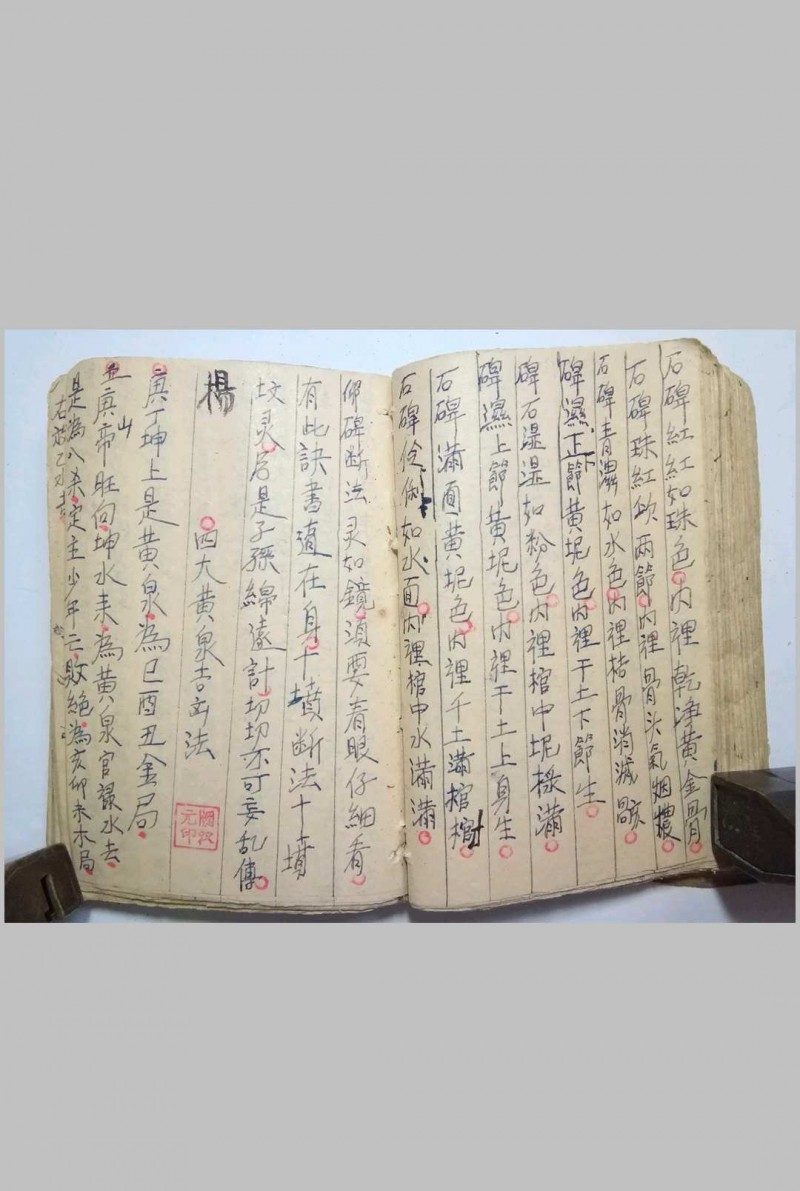 石碑紅紅如珠色内裡乾淨黃金骨
石碑珠紅欲兩節内裡骨头氣烟
石碑青濕如水色内裡枯骨消滅
碑濕正節黃坭色内裡干土下節生
碑石湿湿如粉色内裡棺中坭様滿
碑濕上節黃坭色内裡干土上身生
石碑滿面黃坭色内裡千土滿棺
石碑伶俐如水面内裡棺中水滿滿
仰碑断法灵如鏡須要看眼仔細看
有此訣書適在身十墳断法十墳
坟灵名是子孫綿遠計切切不可妄乱傳
楊
四大黃泉吉凶法
元印
庚丁坤上是黃泉為巳酉丑金局
山
庚帝旺向坤水来為黃泉官禄水去
是為八杀定主少年亡敗絶為亥卯未木局